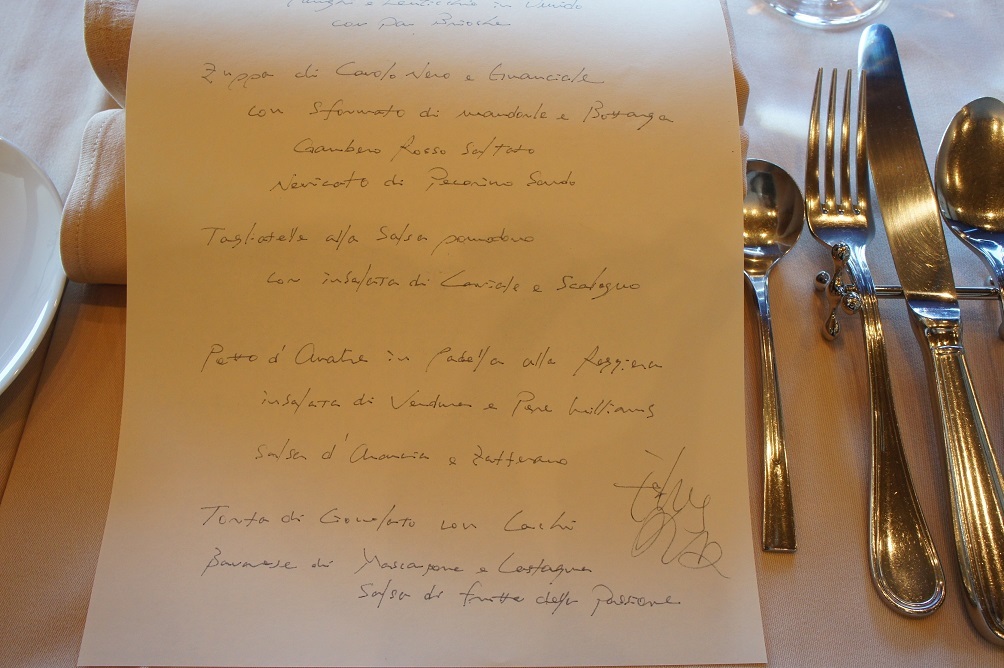 Funghi e Lenticchie in Umido
con Pan Brioche
Zuppa di Cavolo Nero e Guanciale
con Sformato di mandorle e Bottarga
Gambero Rosso Saltato
Nevicato di Pecorino Sardo
Tagliatelle alla Salsa pomodoro
con insalata di Caviale e Scalogno
Petto d'Anatra in Padella alla Reggiera
insalata di Verdure e Pere Williams
Salsa d'Arancia e Zafferano
Torta di Cioccolato con Cachi
Bavarese di Mascarpone e Castagne
Salsa di frutto della Passione